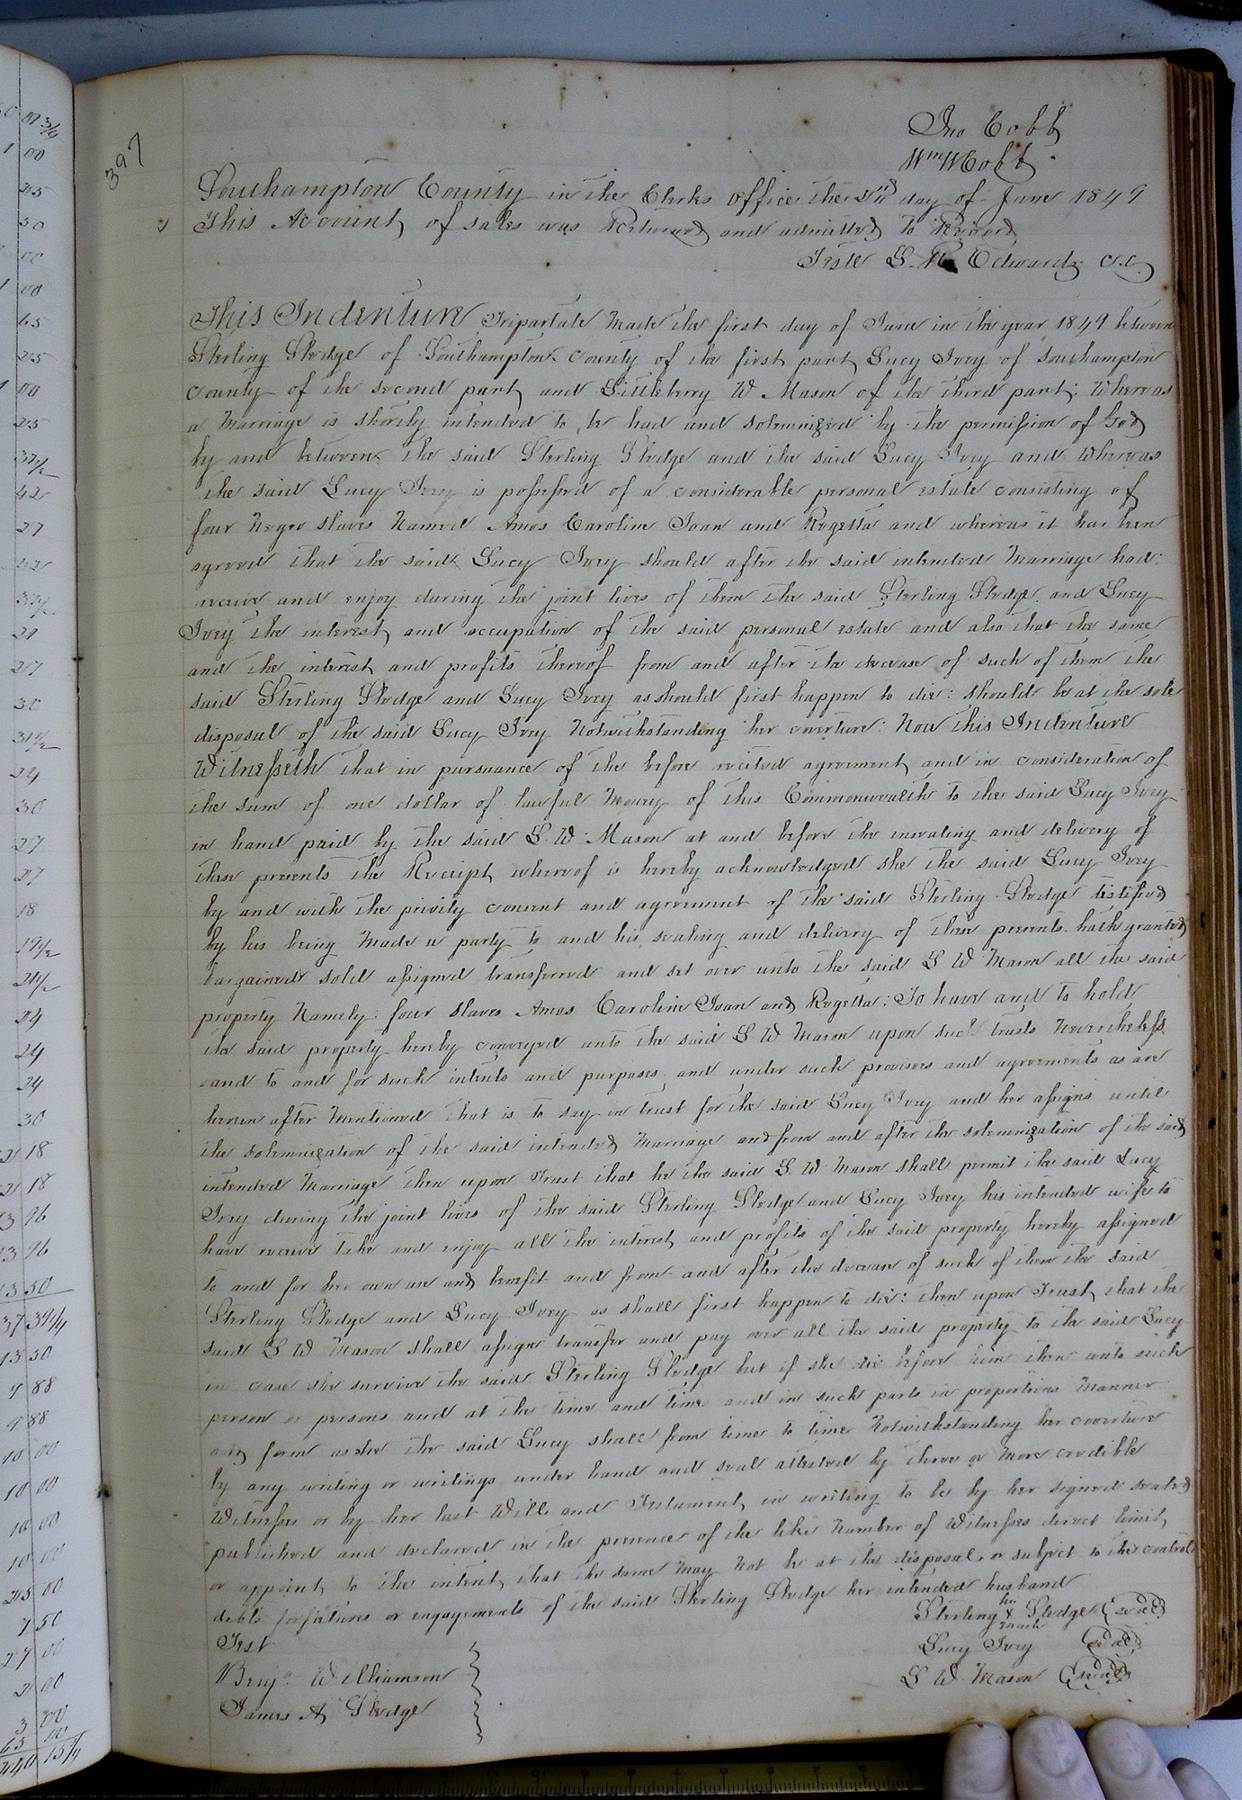 Jno Cobb
Wm W Cobb
397
Southampton County in the Clerks office the day of June 1849
This Account of sales was Returned and admitted to Record
Teste L. R. Edwards c.c.
This Indenture Tripartate Made the first day of June in the year 1849 between
Sterling Sledge of Southampton county of the first part Lucy Ivey of Southampton
county of the second part and Littleberry W Mason of the third part; Whereas
a Marriage is shortly intended to be had and solemnized by the permission of God
by and between the said Sterling Sledge and the said Lucy Ivey and Whereas
the said Lucy Ivey is possessed of a considerable personal estate consisting of
four Negro slaves Named Amos Caroline Joan and Rogetta and whereas it has been
agreed that the said Lucy Ivey should after the said intended Marriage had:
receive and enjoy during the joint lives of them the said Sterling Sledge and Lucy
Ivey the interest and occupation of the said personal estate and also that the same
and the interest and profits thereof from and after the decease of such of them the
said Sterling Sledge and Lucy Ivey as should first happen to die: should be at the sole
disposal of the said Lucy Ivey Notwithstanding her coverture: Now this Indenture
Witnesseth that in pursuance of the before recited agreement and in consideration of
the sum of one dollar of lawful Money of this Commonwealth to the said Lucy Ivey
in hand paid by the said L W Mason at and before the ensealing and delivery of
these presents the Receipt whereof is hereby acknowledged she the said Lucy Ivey
by and with the privity consent and agreement of the said Sterling Sledge testified
by his being Made a party to and his sealing and delivery of these presents hath granted
bargained sold assigned transferred and set over unto the said L W Mason all the said
property Namely: four slaves Amos Caroline Joan and Rogetta: To have and to hold
the said property hereby conveyed unto the said L W Mason upon such trusts Nevertheless
and to and for such intents and purposes and under such provisoes and agreements as are
herein after Mentioned that is to say in trust for the said Lucy Ivey and her assigns until
the solemnization of the said intended Marriage and from and after the solemnization of the said
intended Marriage then upon Trust that he the said L W Mason shall permit the said Lucy
Ivey during the joint lives of the said Sterling Sledge and Lucy Ivey his intended wife to
have receive take and enjoy all the interest and profits of the said property hereby assigned
to and for her own use and benefit and from and after the decease of such of them the said
Sterling Sledge and Lucy Ivey as shall first happen to die: then upon Trust that the
said L W Mason shall assign transfer and pay over all the said property to the said Lucy
in case she survive the said Sterling Sledge but if she die before him then unto such
person or persons and at the time and time and in such parts in proportions Manner
and form as she the said Lucy shall from time to time Notwithstanding her coverture
by any writing or writings under hand and seal attested by three or More credible
Witnesses or by her last Will and Testament in writing to be by her signed sealed
published and declared in the presence of the like Number of Witnesses direct limit
or appoint to the intent that the same May Not be at the disposal or subject to the control
debts forfeitures or engagements of the said Sterling Sledge her intended husband
Sterling his X mark Sledge (seal)
Test
Lucy Ivey (seal)
Benj. Williamson
L W Mason (seal)
James A Sledge